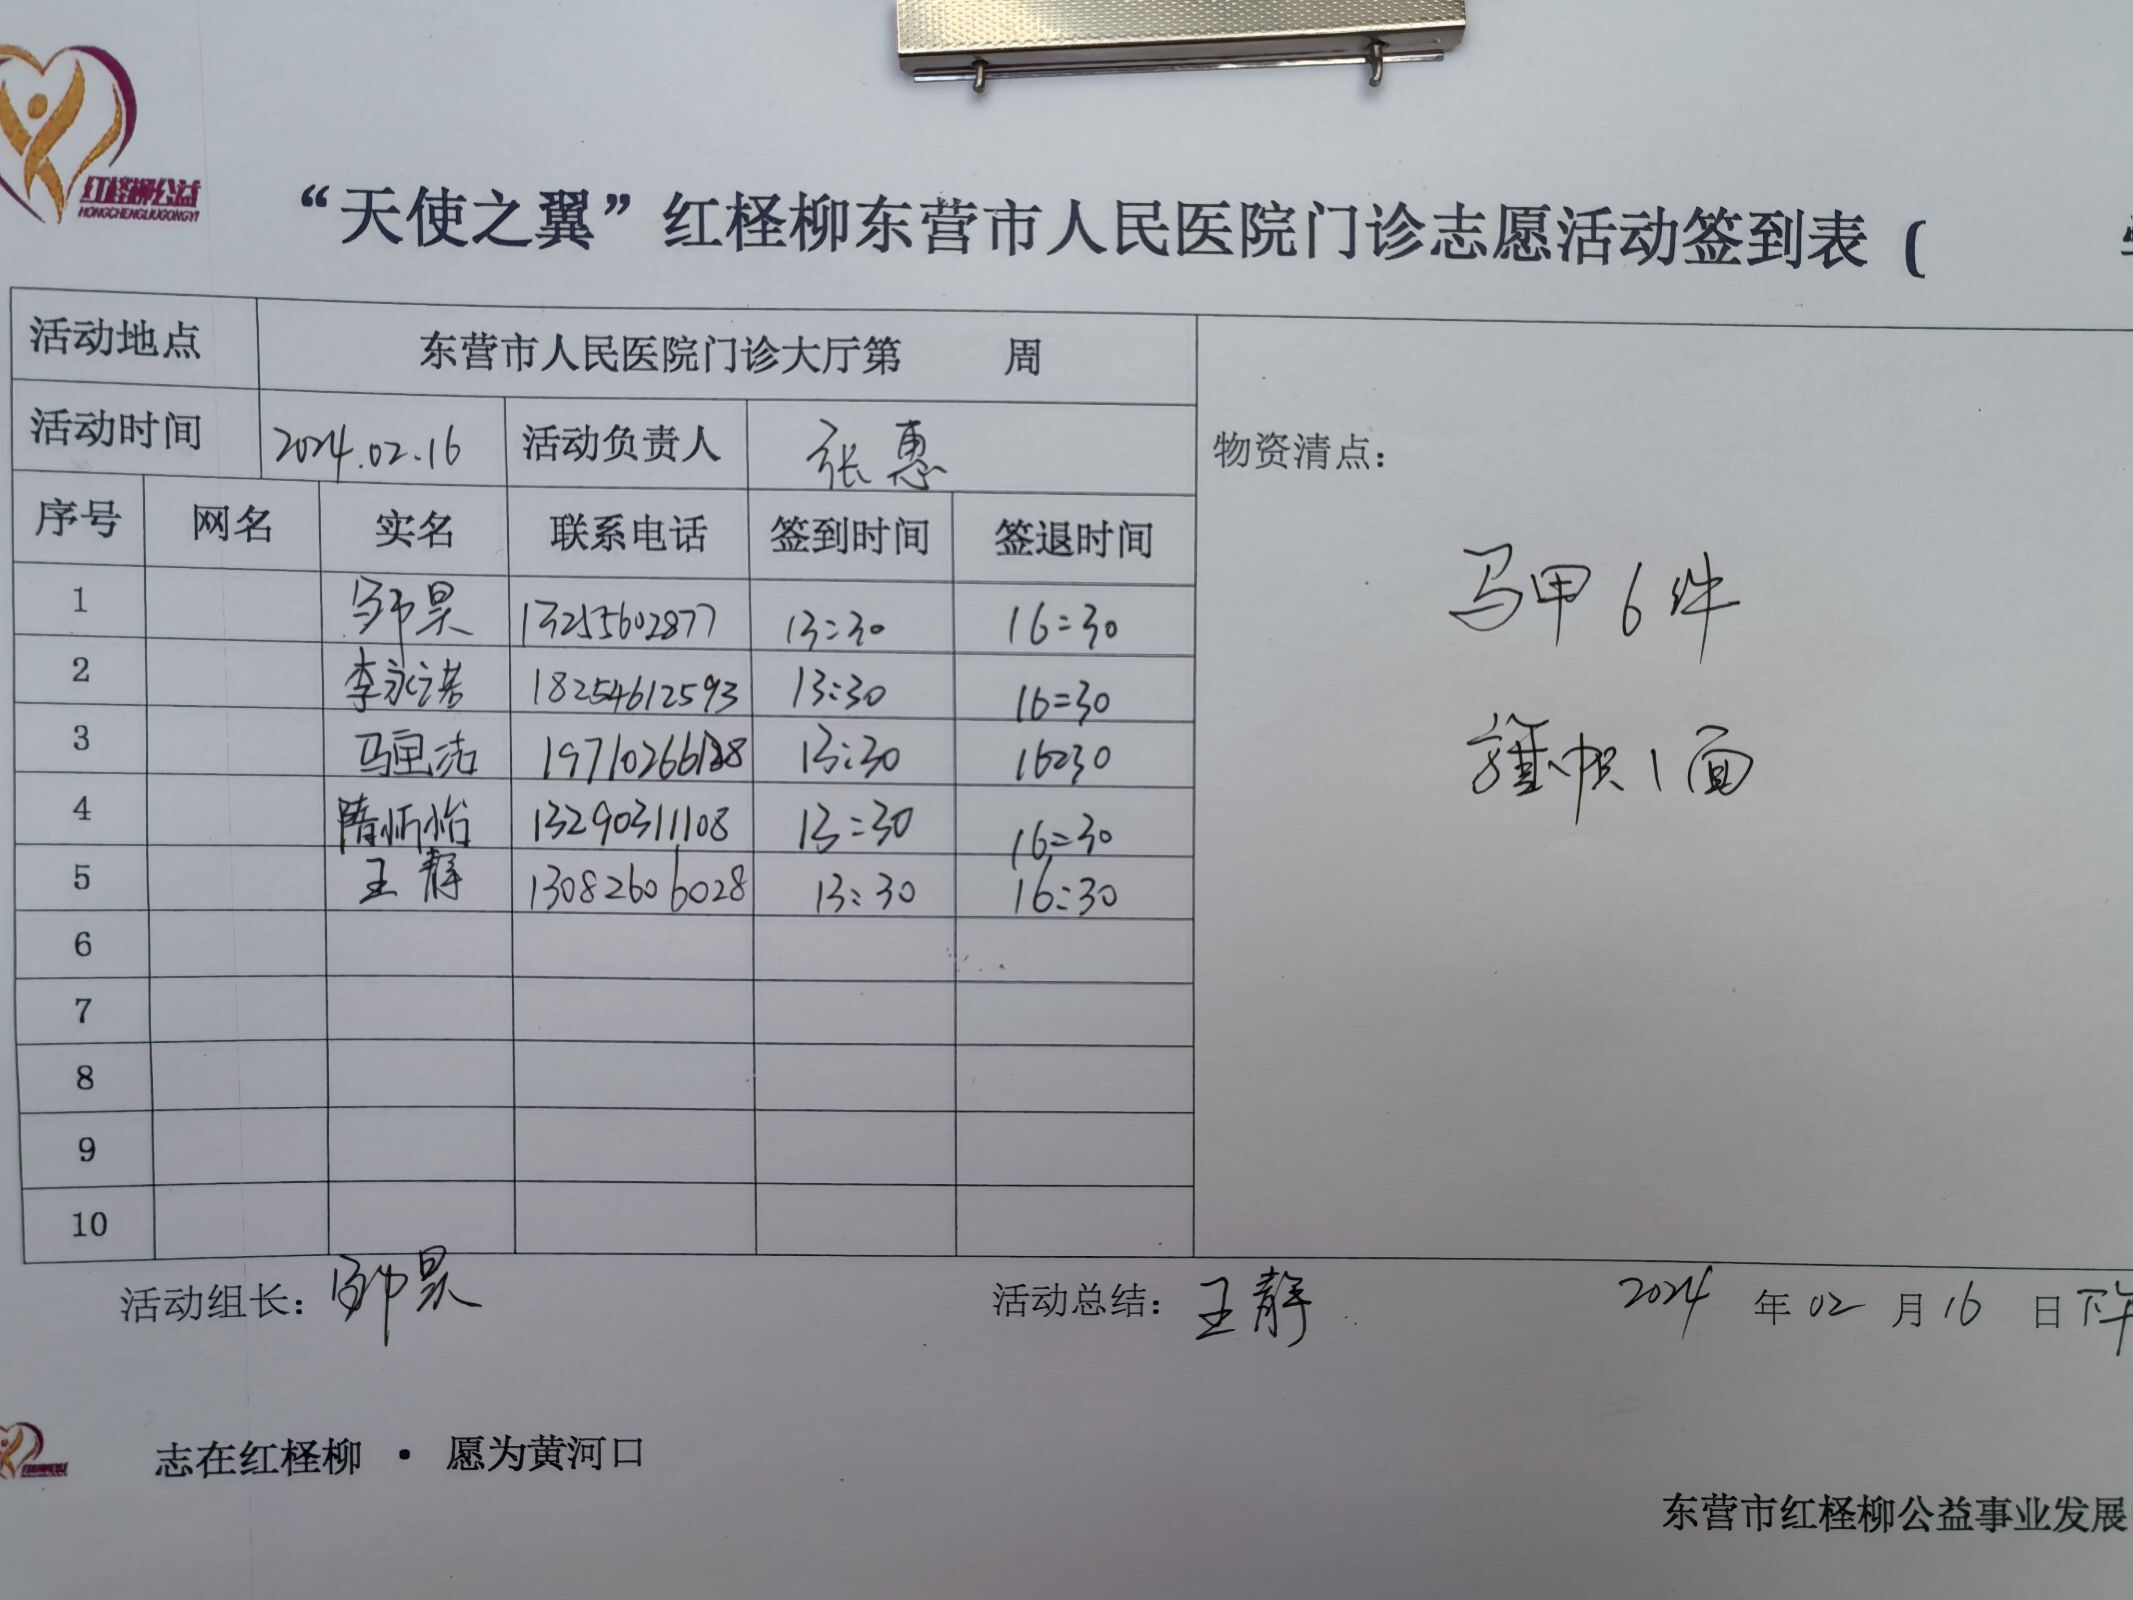 红柽柳公益
HONGCHENGLIUGONGYI
“天使之翼”红柽柳东营市人民医院门诊志愿活动签到表（
活动地点 东营市人民医院门诊大厅第 周
活动时间 2024.02.16 活动负责人 张惠
物资清点：
序号 网名 实名 联系电话 签到时间 签退时间
1 13255602877 13:30 16:30
2 李永诺 18254612593 13:30 16:30
3 13:30 16:30
4 隋忻怡 13290311108 13:30 16:30
5 王静 13082606028 13:30 16:30
6
7
8
9
10
马甲6件
1面
活动组长：
活动总结：王静
2024 年 02 月 16 日 下午
志在红柽柳 · 愿为黄河口
东营市红柽柳公益事业发展